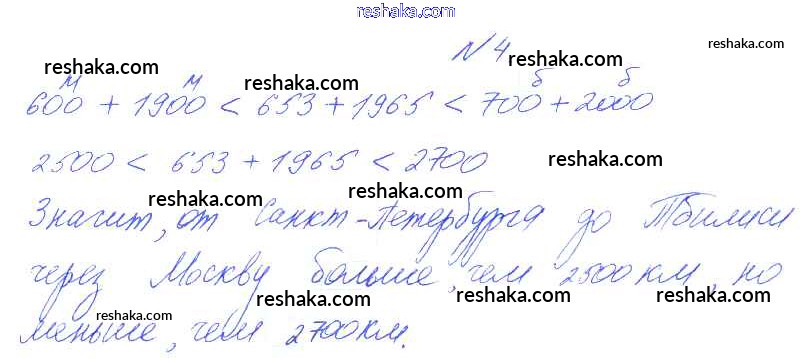 reshaka.com
N 4
reshaka.com
reshaka.com
м м reshaka.com б б
600 + 1900 < 653 + 1965 < 700 + 2000
reshaka.com reshaka.com
2500 < 653 + 1965 < 2700 reshaka.com
reshaka.com reshaka.com
Значит, от Санкт-Петербурга до Тбилиси
reshaka.com
через Москву больше, чем 2500 км, но
reshaka.com reshaka.com
меньше, чем 2700 км.